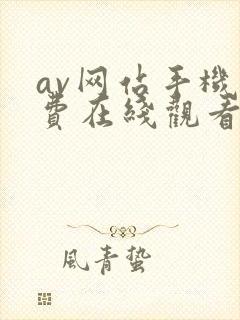 av网佔手機
費在綫觀看
風青蟄